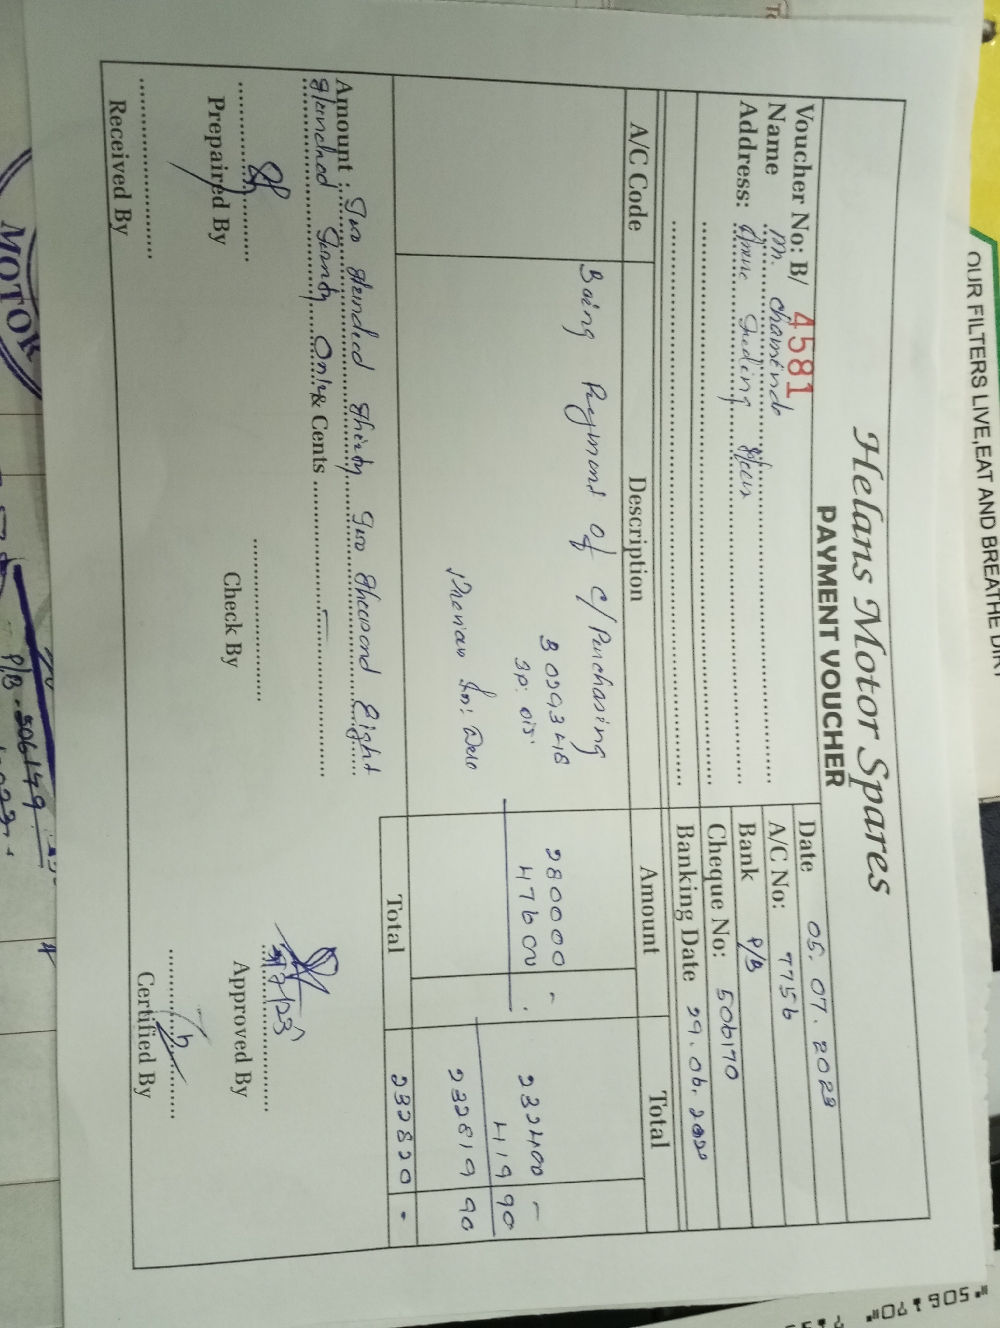 Helans Motor Spares
PAYMENT VOUCHER
Voucher No: B/ 4581
Name M. Chaminda
Address:
Date 05.07.2023
A/C No: 7756
Bank P/B
Cheque No: 506170
Banking Date 29.06.
A/C Code Description Amount Total
Being Payment of c/Purchasing
280000 - 232400 -
47600 . 419 90
232819 90
Total 232820 -
Amount : Two Hundred Thirty Two Thousand Eight
Hundred Twenty Only & Cents –
Prepaired By
Check By
Approved By
Received By
Certified By
OUR FILTERS LIVE,EAT AND BREATHE DIRT
MOTOR
P/B - 506179
⑈506170⑈